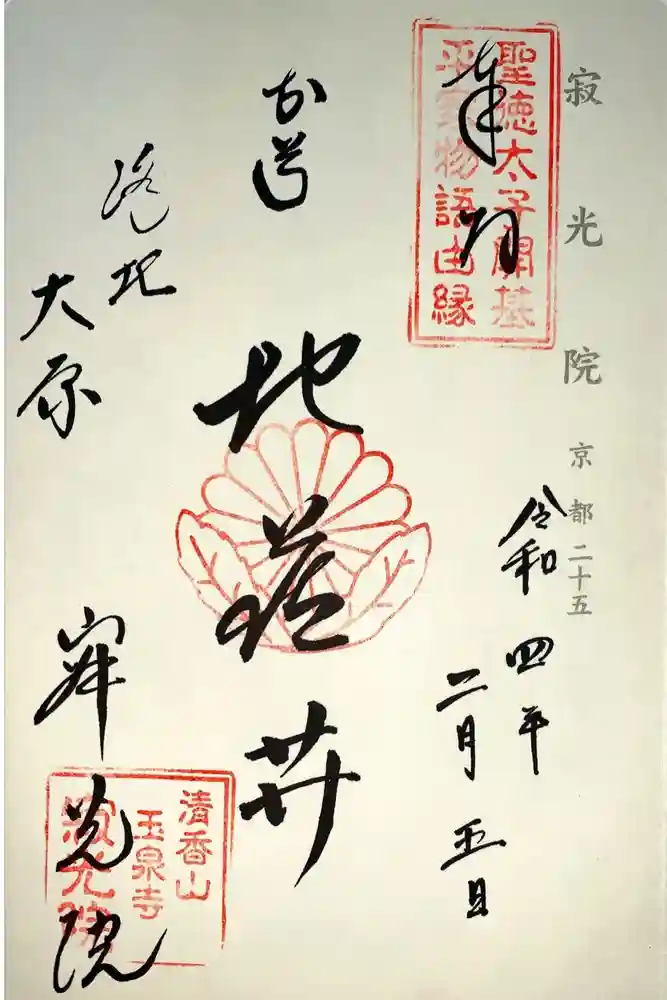 寂光院 京都二十五
聖徳太子開基
平家物語由縁
奉拝
令和四年
二月五日
地蔵𦬇
洛北
大原
寂光院
清香山
玉泉寺
寂光院